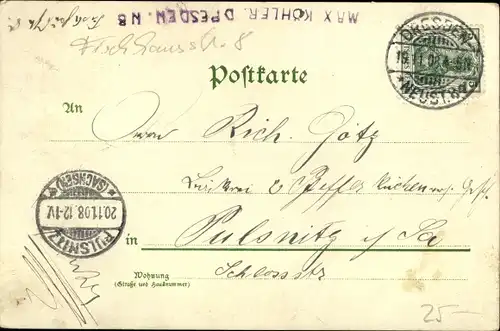 MAX KÖHLER. DRESDEN. N8
Fischhausstr. 8
DRESDEN-
19.11.02. 4-5N
* NEUST. 8 *
Postkarte
An
Herrn Rich. Götz
u. Pfefferkuchen
PULSNITZ
20.11.08. 12-1V.
* (SACHSEN) *
in Pulsnitz i/Sa
Schlossstr
Wohnung
(Straße und Hausnummer)
25-